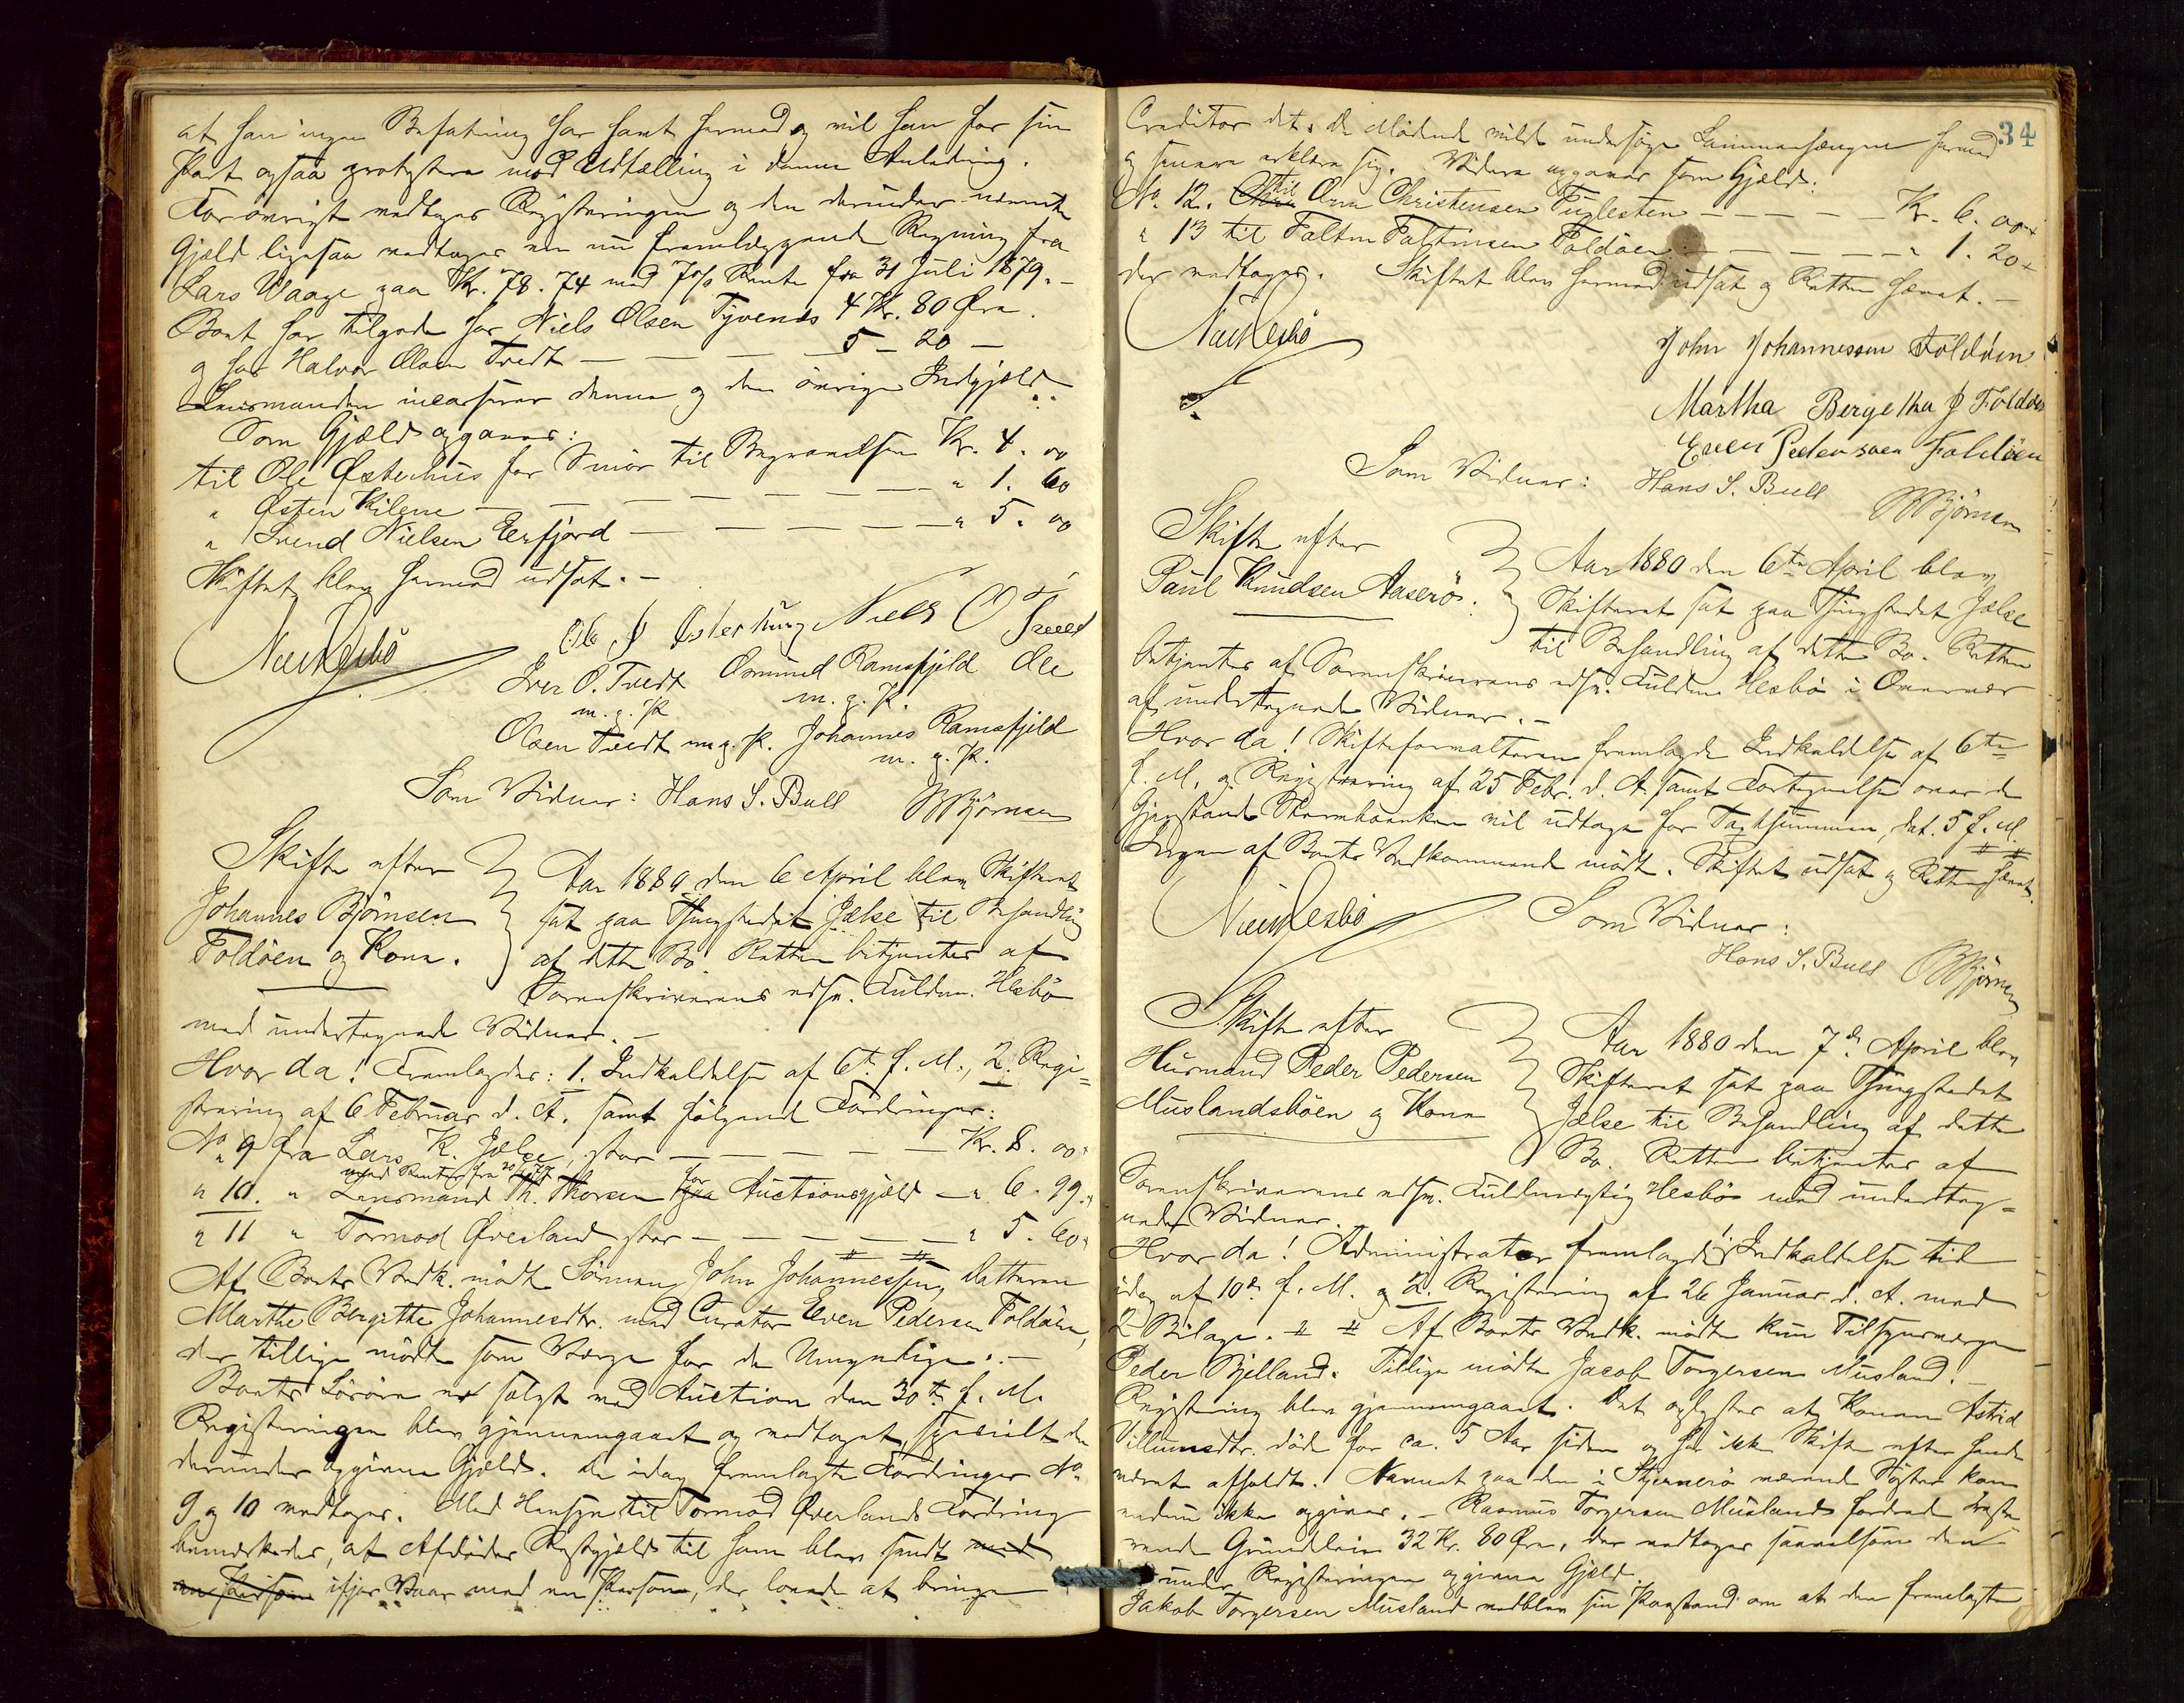 at han ingen Befatning har havt hermed og vil han for sin
Part ogsaa protestere mod Udtælling i denne Anledning.
Forøvrigt vedtages Registreringen og den derunder nævnte
Gjæld ligesaa vedtages en nu fremlæggende Regning fra
Lars Vaage paa Kr. 78.74 med 7 o/o Rente fra 31 Juli 1879.–
Boet har tilgode hos Niels Olsen Tjvenes 4 Kr. 80 Øre.
og hos Halvor Olsen Tvedt — — — 5 – 20 –
Lensmanden incasserer denne og den øvrige Indgjæld.
Som Gjæld opgaves:
til Ole Østerhus for Smør til Begravelsen Kr. 4. 00
" Østen Kilene — — — — — — " 1. 60
" Svend Nielsen Erfjord — — — — — " 5. 00
Skiftet blev hermed udsat. –
Ole J Østerhus Niels O Tveed
Iver O. Tvedt Osmund Ramsfjeld Ole
m. p. P. m. p. P.
Olsen Tvedt m. p. P. Johannes Ramsfjeld
m. p. P.
Som Vidner: Hans S. Bull Bjørnsen
Skifte efter
Johannes Bjørnsen
Foldøen og Kone.
Aar 1880 den 6 April blev Skifteret
sat paa Thingstedet Jelse til Behandling
af dette Bo. Retten betjentes af
Sorenskriverens edsv. Fuldm. Hesbø
med undertegnede Vidner. –
Hvor da! Fremlagdes: 1. Indkaldelse af 6te f. M., 2. Regi=
strering af 6 Februar d. A. samt følgende Fordringer:
No 9 fra Lars K. Jelse, stor — — — — Kr. 8. 00
med Renter fra
" 10. " Lensmand Th. Thorsen for Auctionsgjæld — " 6. 99.
" 11 " Tormod Øvesland stor — — — — — " 5. 60
Af Boets Vedk. mødte Sønnen John Johannessen, Datteren
Marthe Bergithe Johannesdtr. med Curator Even Pedersen Foldøen,
der tillige mødte som Værge for de Umyndige. –
Boets Løsøre er solgt ved Auction den 30te f. M.
Registreringen blev gjennemgaaet og vedtaget, specielt den
derunder opgivne Gjæld. De idag fremlagte Fordringer No
9 og 10 vedtages. Med Hensyn til Tormod Øverlands Fordring
bemærkedes, at Afdødes Restgjæld til ham blev sendt med
en Person ifjor Vaar med en Person, der lovede at bringe
34
Creditor det. De Mødende vilde undersøge Sammenhængen hermed
og senere erklære sig. Videre opgaves som Gjæld:
No. 12. til Orm Christensen Fuglesten — — — — Kr. 6. 00
" 13 til Faltin Faltinsen Foldøen — — — — " 1. 20
der vedtages. Skiftet blev hermed udsat og Retten hævet. –
John Johannessen Foldøen
Martha Bergetha J Foldøen
Even Pedersoen Foldöen
Som Vidner: Hans S. Bull Bjørnsen
Skifte efter
Paul Knudsen Aaserø.
Aar 1880 den 6te April blev
Skifteret sat paa Thingstedet Jelse
til Behandling af dette Bo. Retten
betjentes af Sorenskriverens edsv. Fuldm. Hesbø i Overvær
af undertegnede Vidner. –
Hvor da! Skifteforvalteren fremlagde Indkaldelse af 6te
f. M. og Registrering af 25 Febr. d. A. samt Fortegnelse over de
Gjenstande Stervboenken vil udtage for Taxtsummen, dat. 5 f. M.
Ingen af Boets Vedkommende mødte. Skiftet udsat og Retten hævet.
Som Vidner:
Hans S. Bull Bjørnsen
Skifte efter
Husmand Peder Pedersen
Muslandsbøen og Kone
Aar 1880 den 7de April blev
Skifteret sat paa Thingstedet
Jelse til Behandling af dette
Bo. Retten betjentes af
Sorenskriverens edsv. Fuldmægtig Hesbø med underteg=
nede Vidner.
Hvor da! Administrator fremlagde 1. Indkaldelse til
idag af 10de f. M. og 2. Registrering af 26 Januar d. A. med
2 Bilage. Af Boets Vedk. mødte kun Tilsynsværgen
Peder Bjelland. Tillige mødte Jacob Torgersen Musland. –
Registrering blev gjennemgaaet. Det oplystes at Konen Astrid
Villumsdtr. døde for ca. 5 Aar siden og har ikke Skifte efter hende
været afholdt. Navnet paa den i Stjernerø værende Søster kan
endnu ikke opgives. – Rasmus Torgersen Musland fordrede
rende Grundleie 32 Kr. 80 Øre, der vedtages saavelsom den
under Registreringen opgivne Gjæld.
Jakob Torgersen Musland vedblev sin Paastand om at den fremlagte